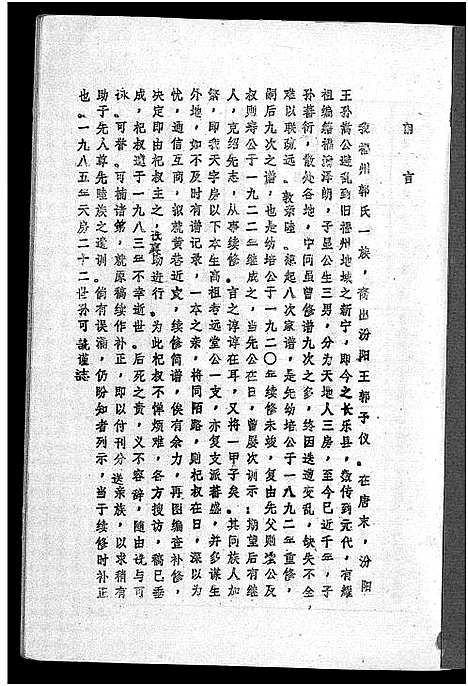 前言
我福州郭氏一族，裔出汾阳王郭子仪。在唐末，汾阳
王孙嵩公避乱到旧福州地域之新宁，即今之长乐县，数传到元代，有耀
祖编籍福清泽朗，子显公生三男，分为天地人三房，至今已近千年，子
孙蕃衍，散处各地，中间虽曾修谱九次之多，终因迭遭变乱，缺失不全，
难以联疏远。敦亲睦。缘起八次家谱，是先幼培公于一八九二年重修，
嗣后九次之谱，也是幼培公于一九二〇年续修未竣，复由先父则堂公及
叔则培公于一九二二年继成之，当先公在日，曾屡次训示：期望后有继
人，克绍先志，从事续修。言之谆谆在耳，又将一甲子矣。其问族人加
繁，即我天字房以下本生高祖考远堂公一支，亦复支派蕃盛，并多谋生
外地，如不及时有谱记录，一本之亲，将同陌路，则杞叔在日，深以为
忧，通信互商，拟就黄巷近支，续修简谱，俟有余力，再图编查补修，
决定即由杞叔主之，
场进行。为此杞叔不惮烦难，各方搜访，稿已垂
成，杞叔遽于一九八三年不幸逝世。后死之责，义不容辞，随由铣与可
咏。可眷。可捷诸弟，就原稿续作补正，即以付刊分送亲族，以求稍有
助于先人尊先睦族之遗训。倘有误漏，仍盼知者列示，当于续修时补正
也。一九八五年天房二十二世孙可铣谨志